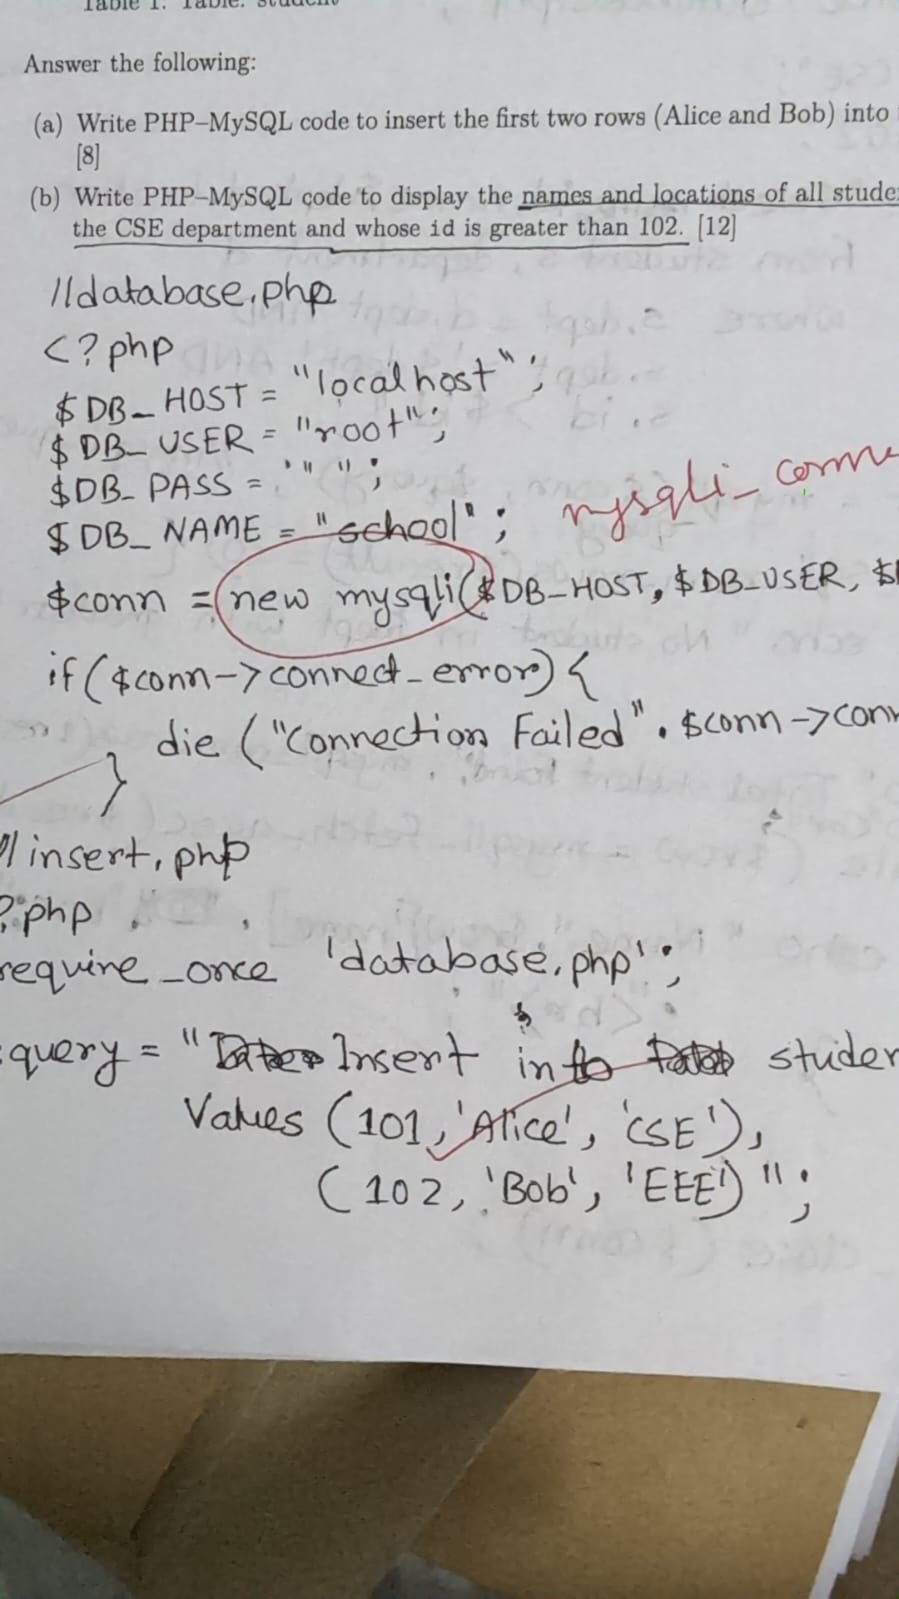 Table 1: Table: student
Answer the following:
(a) Write PHP–MySQL code to insert the first two rows (Alice and Bob) into
[8]
(b) Write PHP–MySQL code to display the names and locations of all stude
the CSE department and whose id is greater than 102. [12]
//database.php
<?php
$DB_HOST = "localhost";
$DB_USER = "root";
$DB_PASS = "";
$DB_NAME = "school";
mysqli_conne
$conn = new mysqli($DB_HOST, $DB_USER, $
if($conn->connect_error){
die ("Connection Failed". $conn->conn
}
// insert.php
?php
require_once 'database.php';
query = "Insert into studen
Values (101, 'Alice', 'CSE'),
(102, 'Bob', 'EEE')";